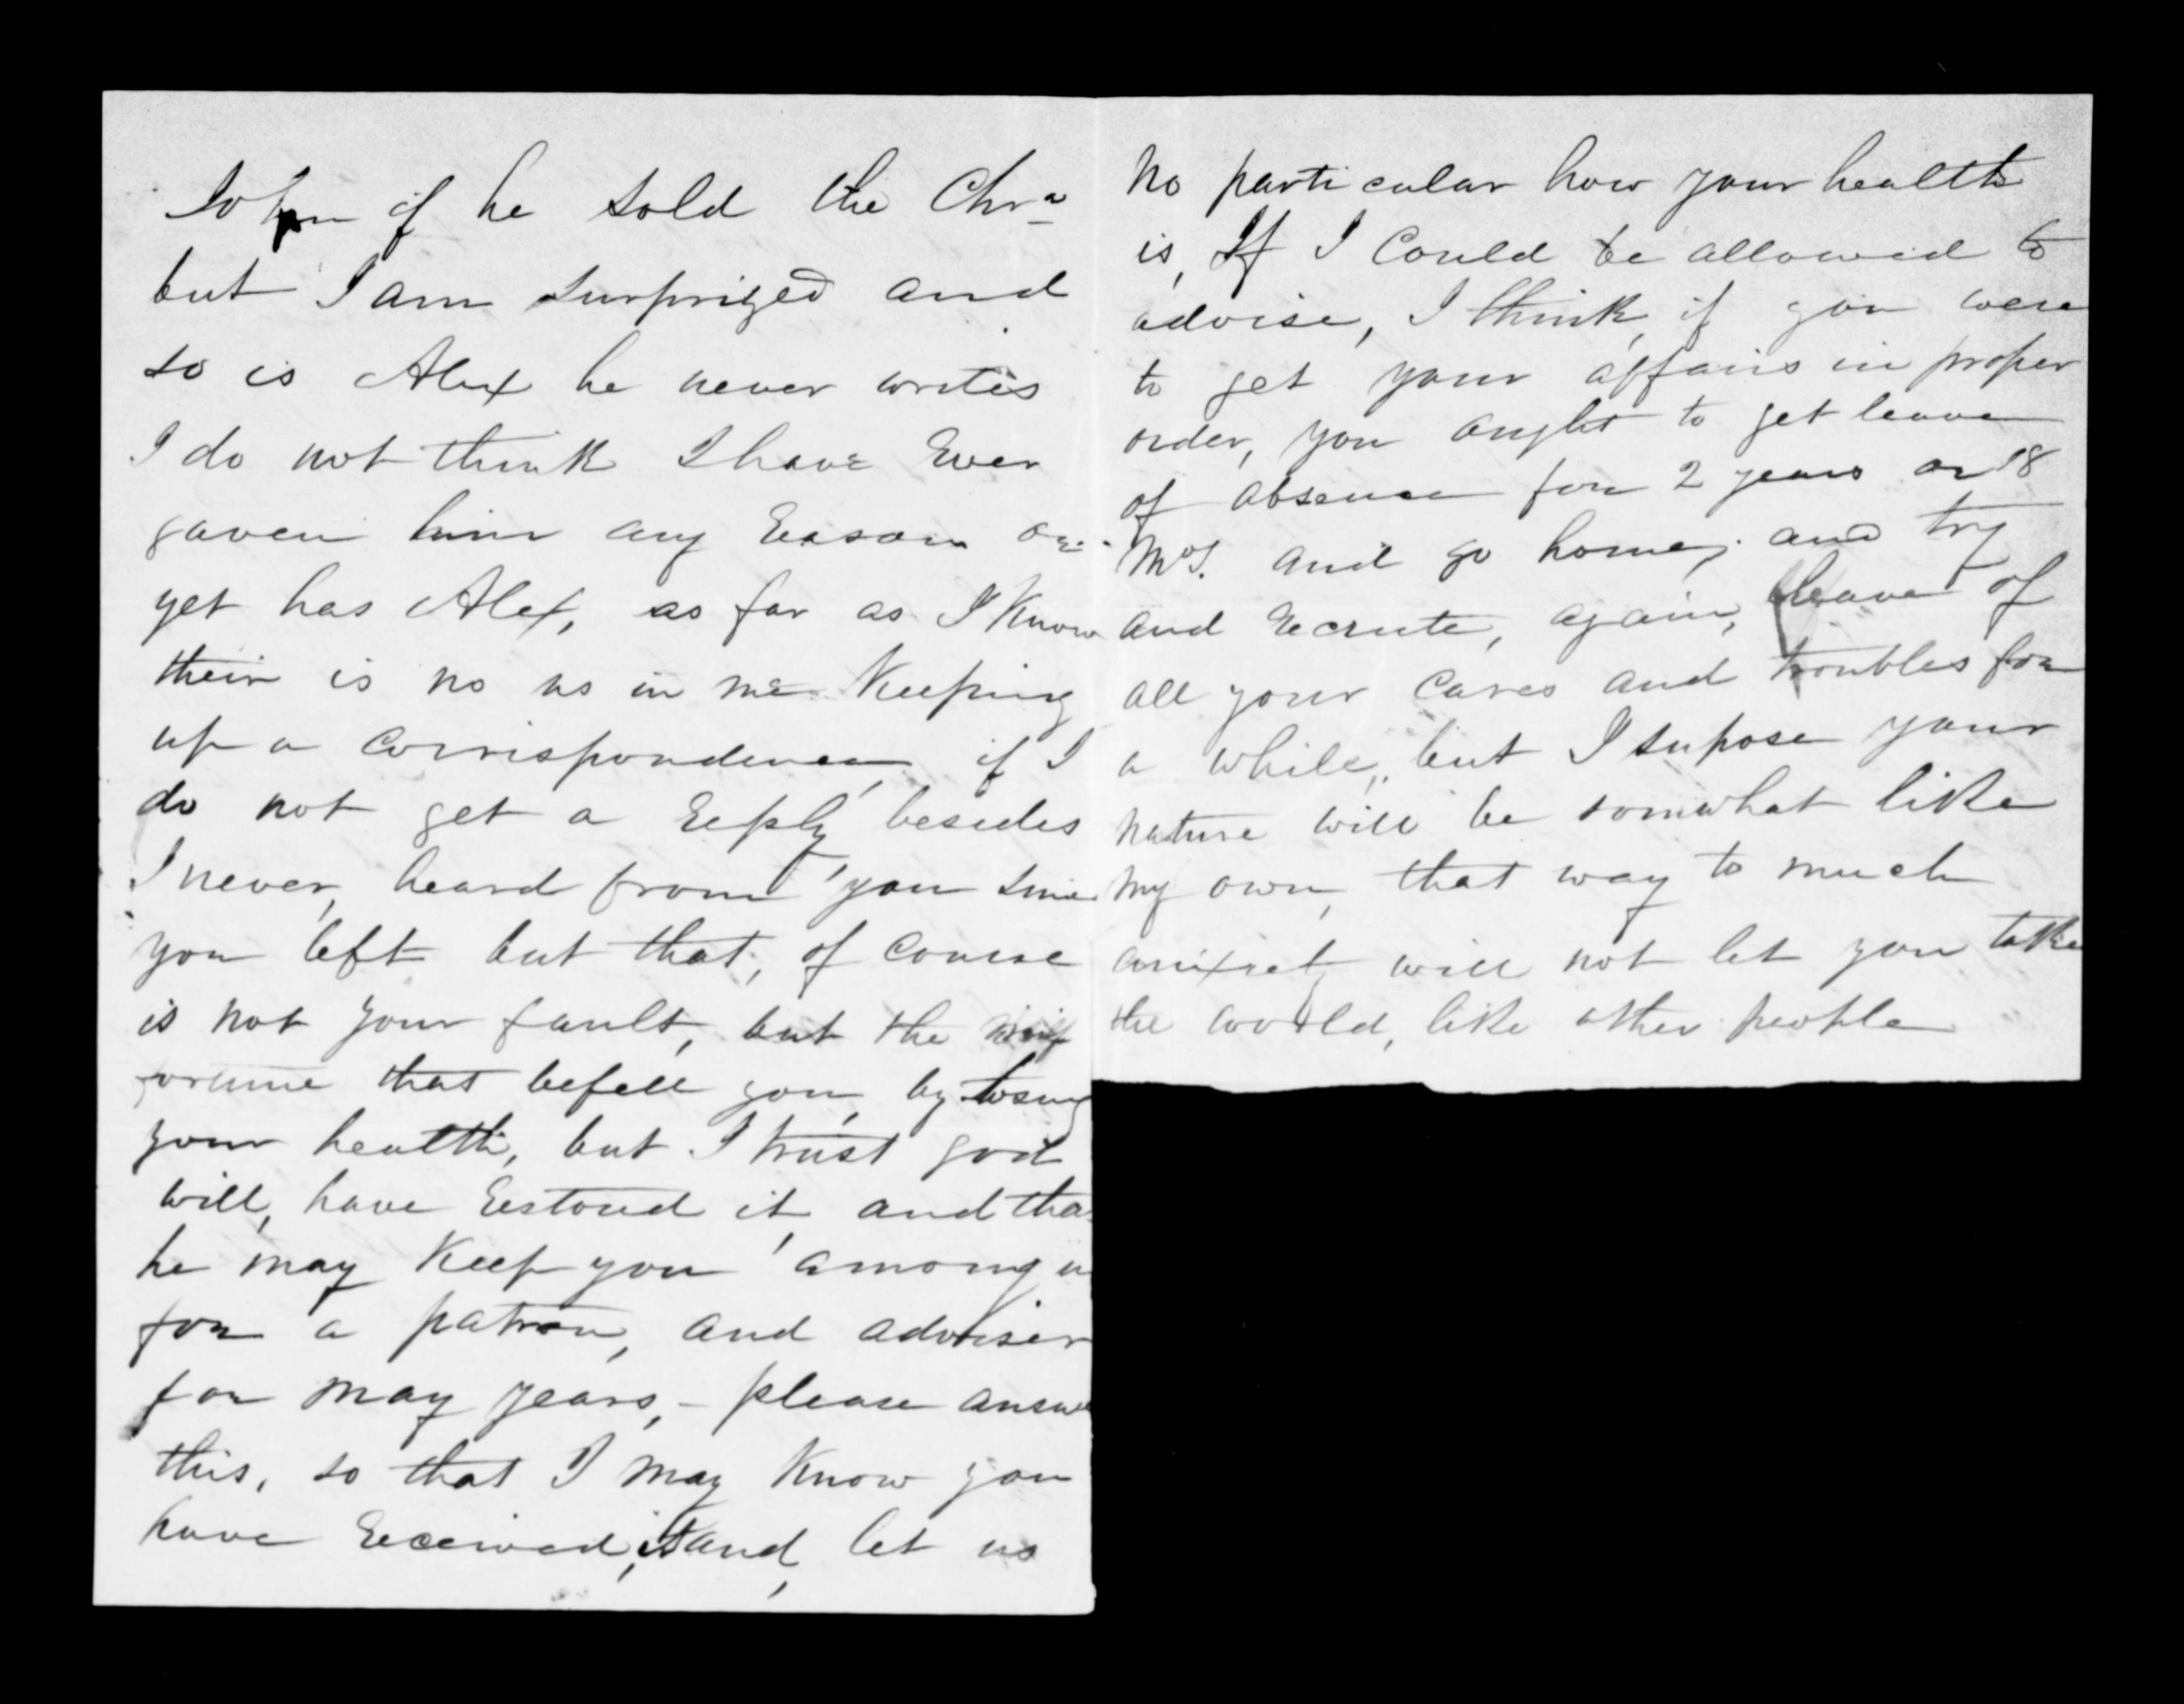 if he sold the Chra
but I am surprized and
so is Alex he never writes
I do not think I have Ever
gaven him any Reason or
yet has Alex, as far as I Know
their is no us in me Keeping
up a corrispondence, if I
do not get a Reply, besides
I never, heard from you since
you left but that, of course
is not your fault, but the mis
fortune that befell you, by losing
your health, but I trust god
will, have Restored it, and that
he may Keep you among us
for a patron, and adviser
for may years, - please answer
this, so that I may Know you
have Received, it and, let us
No particular how your health
is, If I Could be allowed to
advise, I think, if you were
to get your affairs in proper
order, you aught to get leave
of absence for 2 years or 18
Mos. and go home, and try
and Recrute, again, leave of
all your cares and troubles for
a while, but I supose your
nature will be somwhat like
my own, that way to much
anixiety will not let you take
the world, like other people